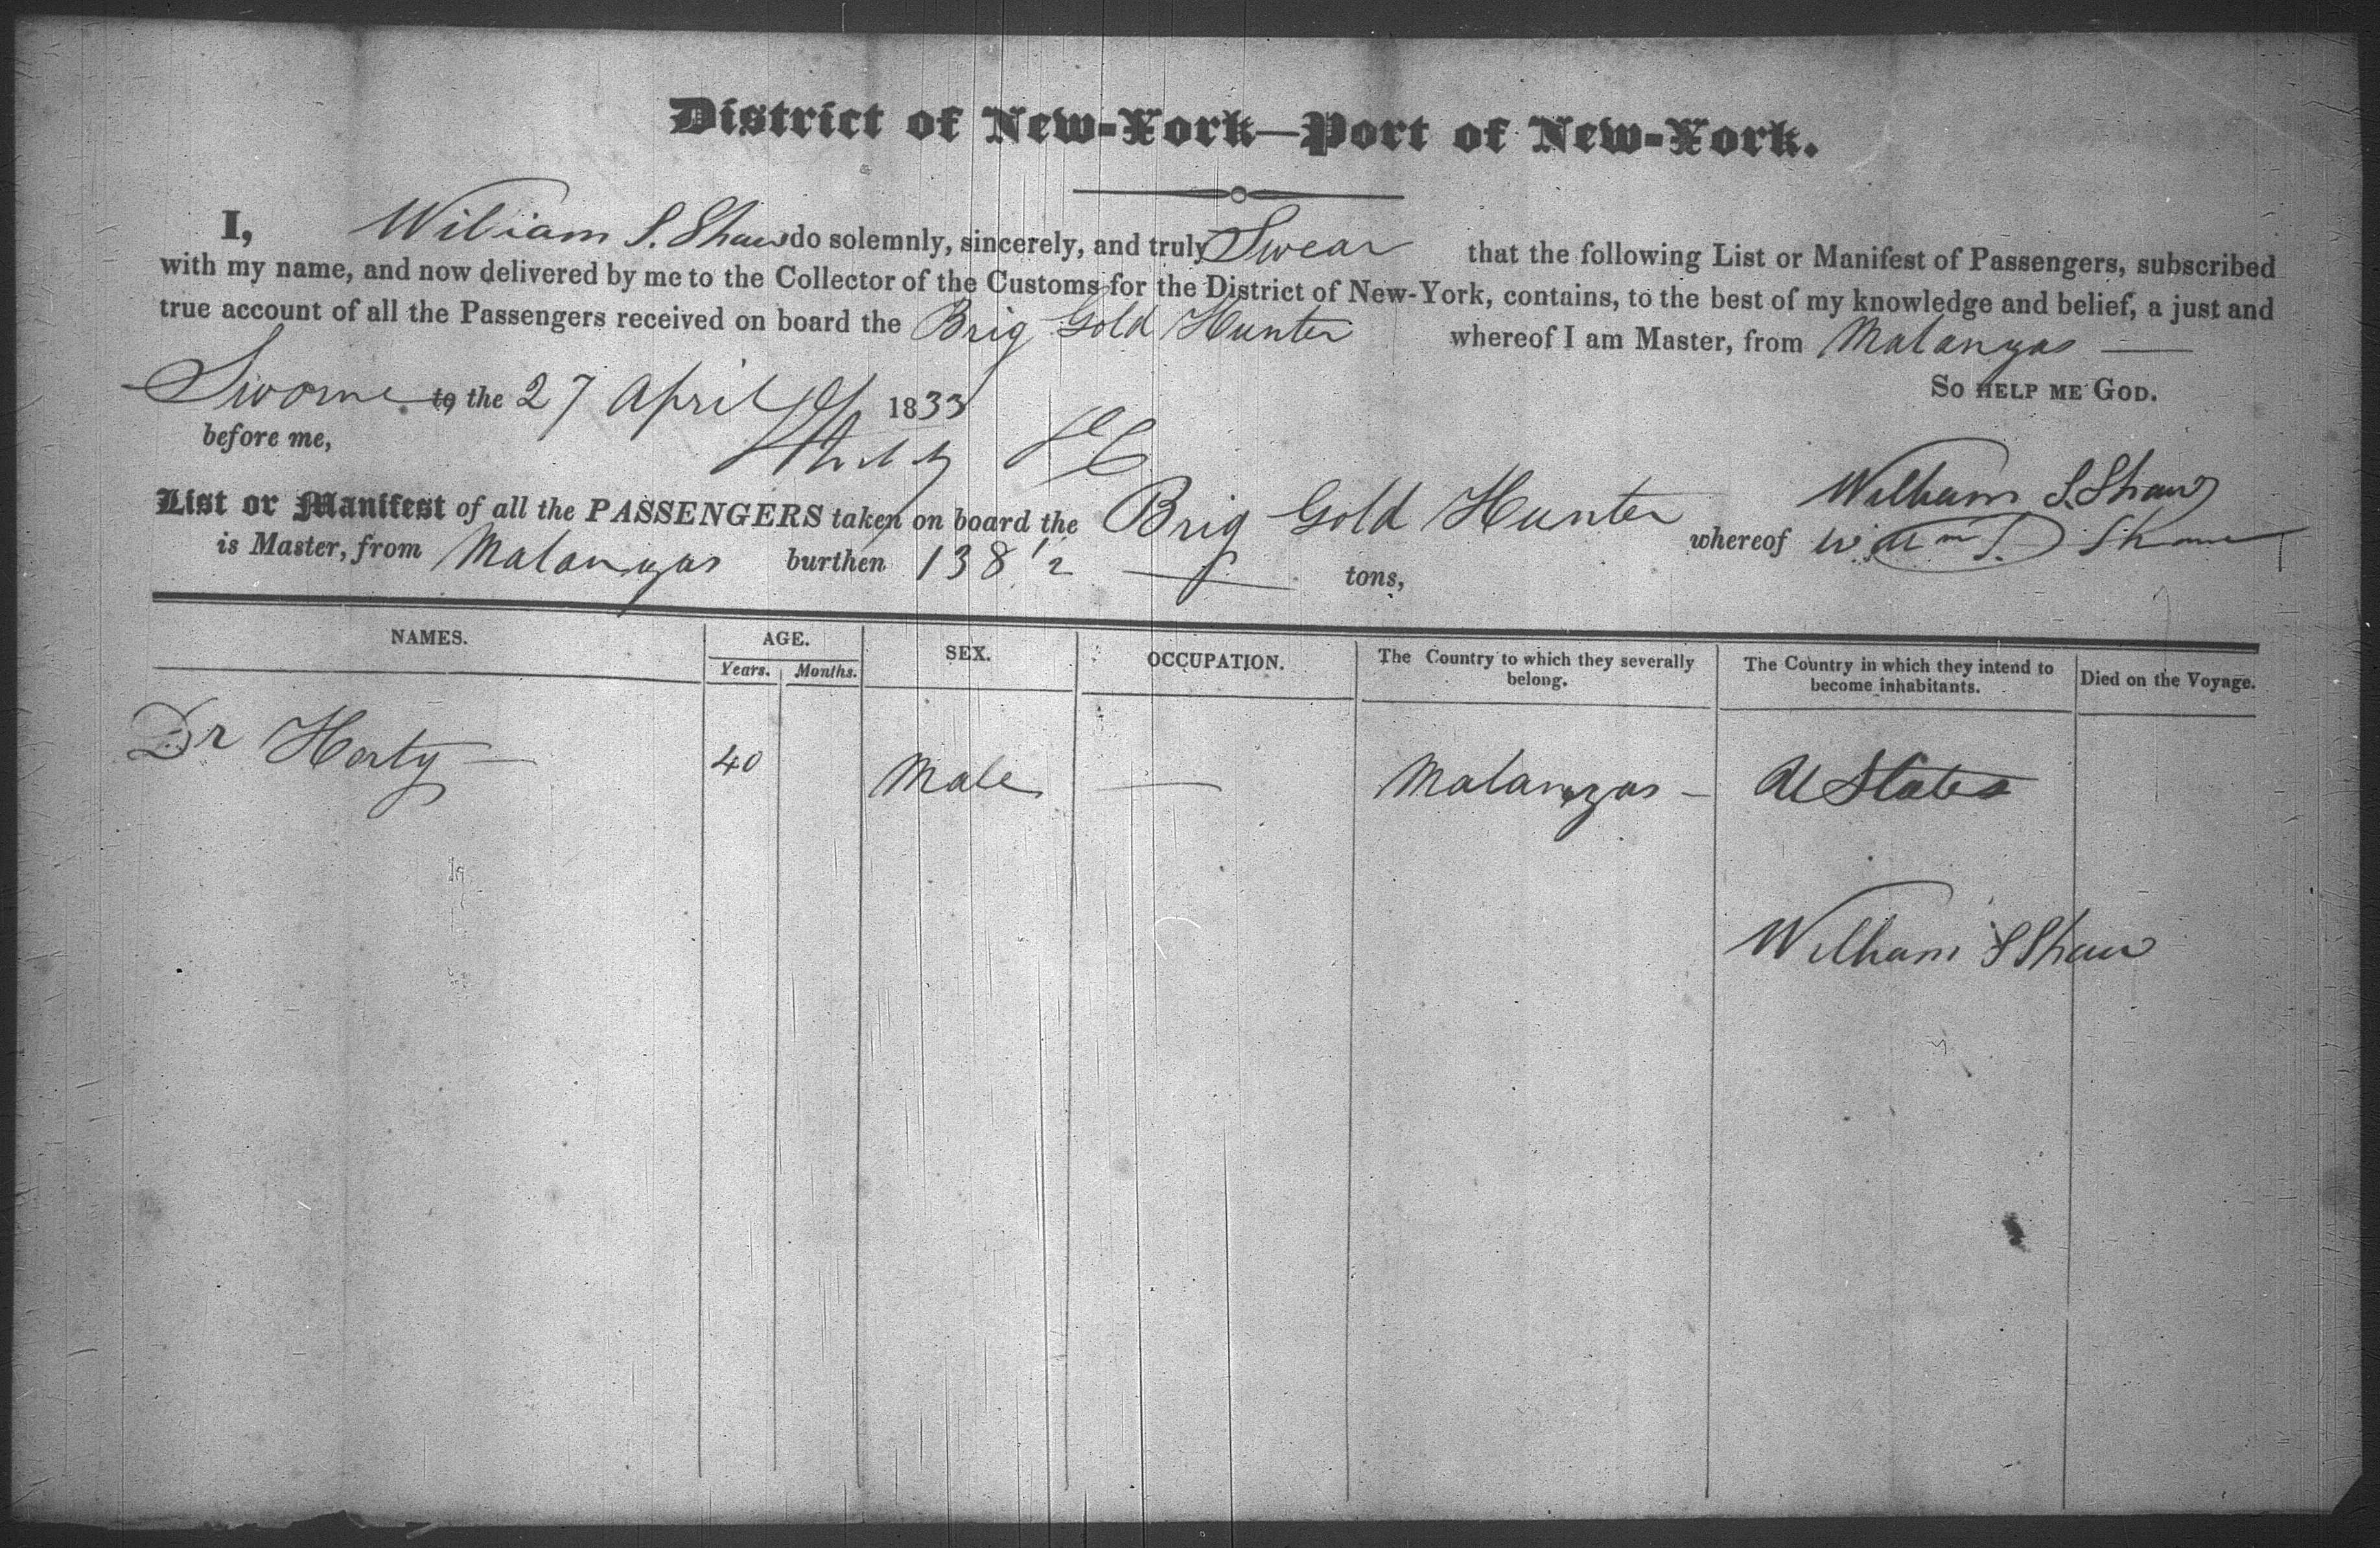 District of New-York—Port of New-York.
I, William S. Shaw do solemnly, sincerely, and truly Swear that the following List or Manifest of Passengers, subscribed
with my name, and now delivered by me to the Collector of the Customs for the District of New-York, contains, to the best of my knowledge and belief, a just and
true account of all the Passengers received on board the Brig Gold Hunter whereof I am Master, from Matanzas —
So help me God.
Sworne to the 27 April 1833
before me,
William S. Shaw
List or Manifest of all the PASSENGERS taken on board the Brig Gold Hunter whereof Willm S. Shaw
is Master, from Matanzas burthen 138 1/2 tons,
NAMES. AGE. SEX. OCCUPATION. The Country to which they severally belong. The Country in which they intend to become inhabitants. Died on the Voyage.
Years. Months.
Dr Horty — 40 Male — Matanzas — U States
William S Shaw